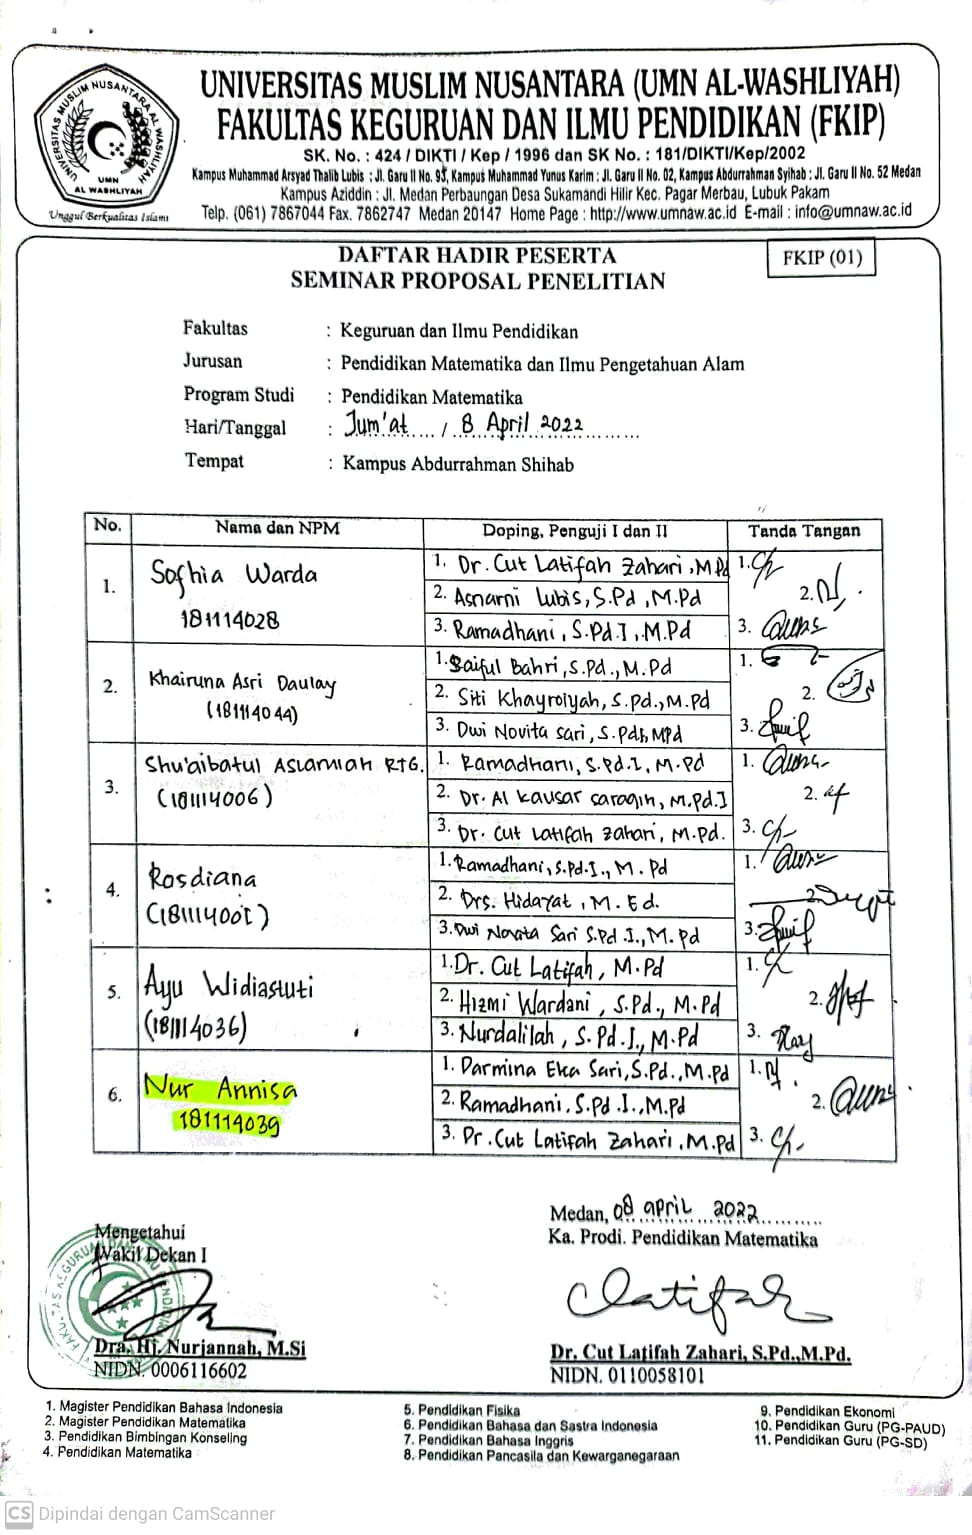 UNIVERSITAS MUSLIM NUSANTARA AL WASHLIYAH
UMN
AL WASHLIYAH
Unggul Berkualitas Islami
UNIVERSITAS MUSLIM NUSANTARA (UMN AL-WASHLIYAH)
FAKULTAS KEGURUAN DAN ILMU PENDIDIKAN (FKIP)
SK. No. : 424 / DIKTI / Kep / 1996 dan SK No. : 181/DIKTI/Kep/2002
Kampus Muhammad Arsyad Thalib Lubis : Jl. Garu II No. 93, Kampus Muhammad Yunus Karim : Jl. Garu II No. 02, Kampus Abdurrahman Syihab : Jl. Garu II No. 52 Medan
Kampus Aziddin : Jl. Medan Perbaungan Desa Sukamandi Hilir Kec. Pagar Merbau, Lubuk Pakam
Telp. (061) 7867044 Fax. 7862747 Medan 20147 Home Page : http://www.umnaw.ac.id E-mail : info@umnaw.ac.id
DAFTAR HADIR PESERTA
SEMINAR PROPOSAL PENELITIAN
FKIP (01)
Fakultas : Keguruan dan Ilmu Pendidikan
Jurusan : Pendidikan Matematika dan Ilmu Pengetahuan Alam
Program Studi : Pendidikan Matematika
Hari/Tanggal : Jum'at / 8 April 2022
Tempat : Kampus Abdurrahman Shihab
No. Nama dan NPM Doping, Penguji I dan II Tanda Tangan
1. Sofhia Warda
181114028
1. Dr. Cut Latifah Zahari, M.Pd 1.
2. Asnarni Lubis, S.Pd, M.Pd 2.
3. Ramadhani, S.Pd.I, M.Pd 3.
2. Khairuna Asri Daulay
(181114044)
1. Saiful Bahri, S.Pd., M.Pd 1.
2. Siti Khayroiyah, S.Pd., M.Pd 2.
3. Dwi Novita Sari, S.PdI, MPd 3.
3. Shu'aibatul Aslamiah RTG.
(181114006)
1. Ramadhani, S.Pd.I, M.Pd 1.
2. Dr. Al Kausar Saragih, M.Pd.I 2.
3. Dr. Cut Latifah Zahari, M.Pd. 3.
4. Rosdiana
1. Ramadhani, S.Pd.I., M.Pd 1.
2. Drs. Hidayat, M.Ed. 2.
3. Dwi Novita Sari S.Pd.I., M.Pd 3.
5. Ayu Widiastuti
(181114036)
1. Dr. Cut Latifah, M.Pd 1.
2. Hizmi Wardani, S.Pd., M.Pd 2.
3. Nurdalilah, S.Pd.I., M.Pd 3.
6. Nur Annisa
181114039
1. Darmina Eka Sari, S.Pd., M.Pd 1.
2. Ramadhani, S.Pd.I., M.Pd 2.
3. Dr. Cut Latifah Zahari, M.Pd 3.
Medan, 08 april 2022
Ka. Prodi. Pendidikan Matematika
Latifah
Dr. Cut Latifah Zahari, S.Pd.,M.Pd.
NIDN. 0110058101
Mengetahui
Wakil Dekan I
Dra. Hj. Nurjannah, M.Si
NIDN. 0006116602
1. Magister Pendidikan Bahasa Indonesia
2. Magister Pendidikan Matematika
3. Pendidikan Bimbingan Konseling
4. Pendidikan Matematika
5. Pendidikan Fisika
6. Pendidikan Bahasa dan Sastra Indonesia
7. Pendidikan Bahasa Inggris
8. Pendidikan Pancasila dan Kewarganegaraan
9. Pendidikan Ekonomi
10. Pendidikan Guru (PG-PAUD)
11. Pendidikan Guru (PG-SD)
CS Dipindai dengan CamScanner